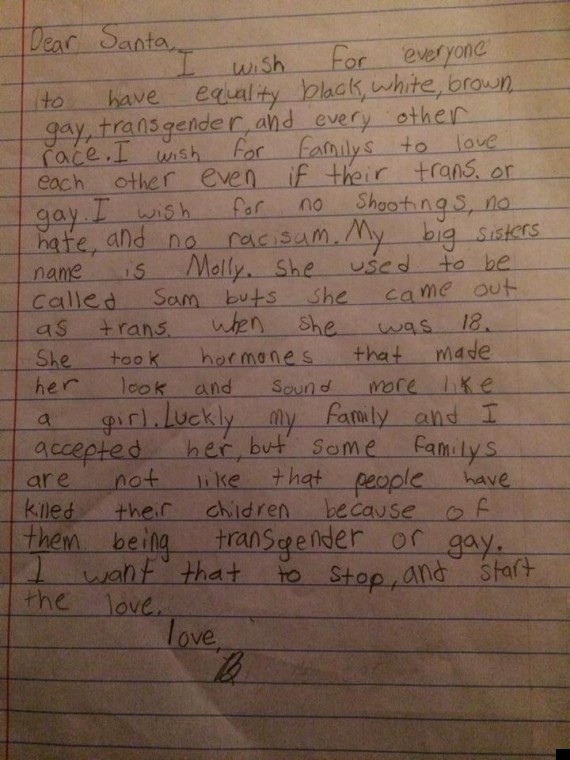 Dear Santa,
I wish for everyone
to have equality black, white, brown,
gay, transgender, and every other
race. I wish for familys to love
each other even if their trans. or
gay. I wish for no shootings, no
hate, and no racisam. My big sisters
name is Molly. She used to be
called Sam buts she came out
as trans. when she was 18.
She took hormones that made
her look and sound more like
a girl. Luckly my family and I
accepted her, but some familys
are not like that people have
killed their children because of
them being transgender or gay.
I want that to stop, and start
the love.
love,